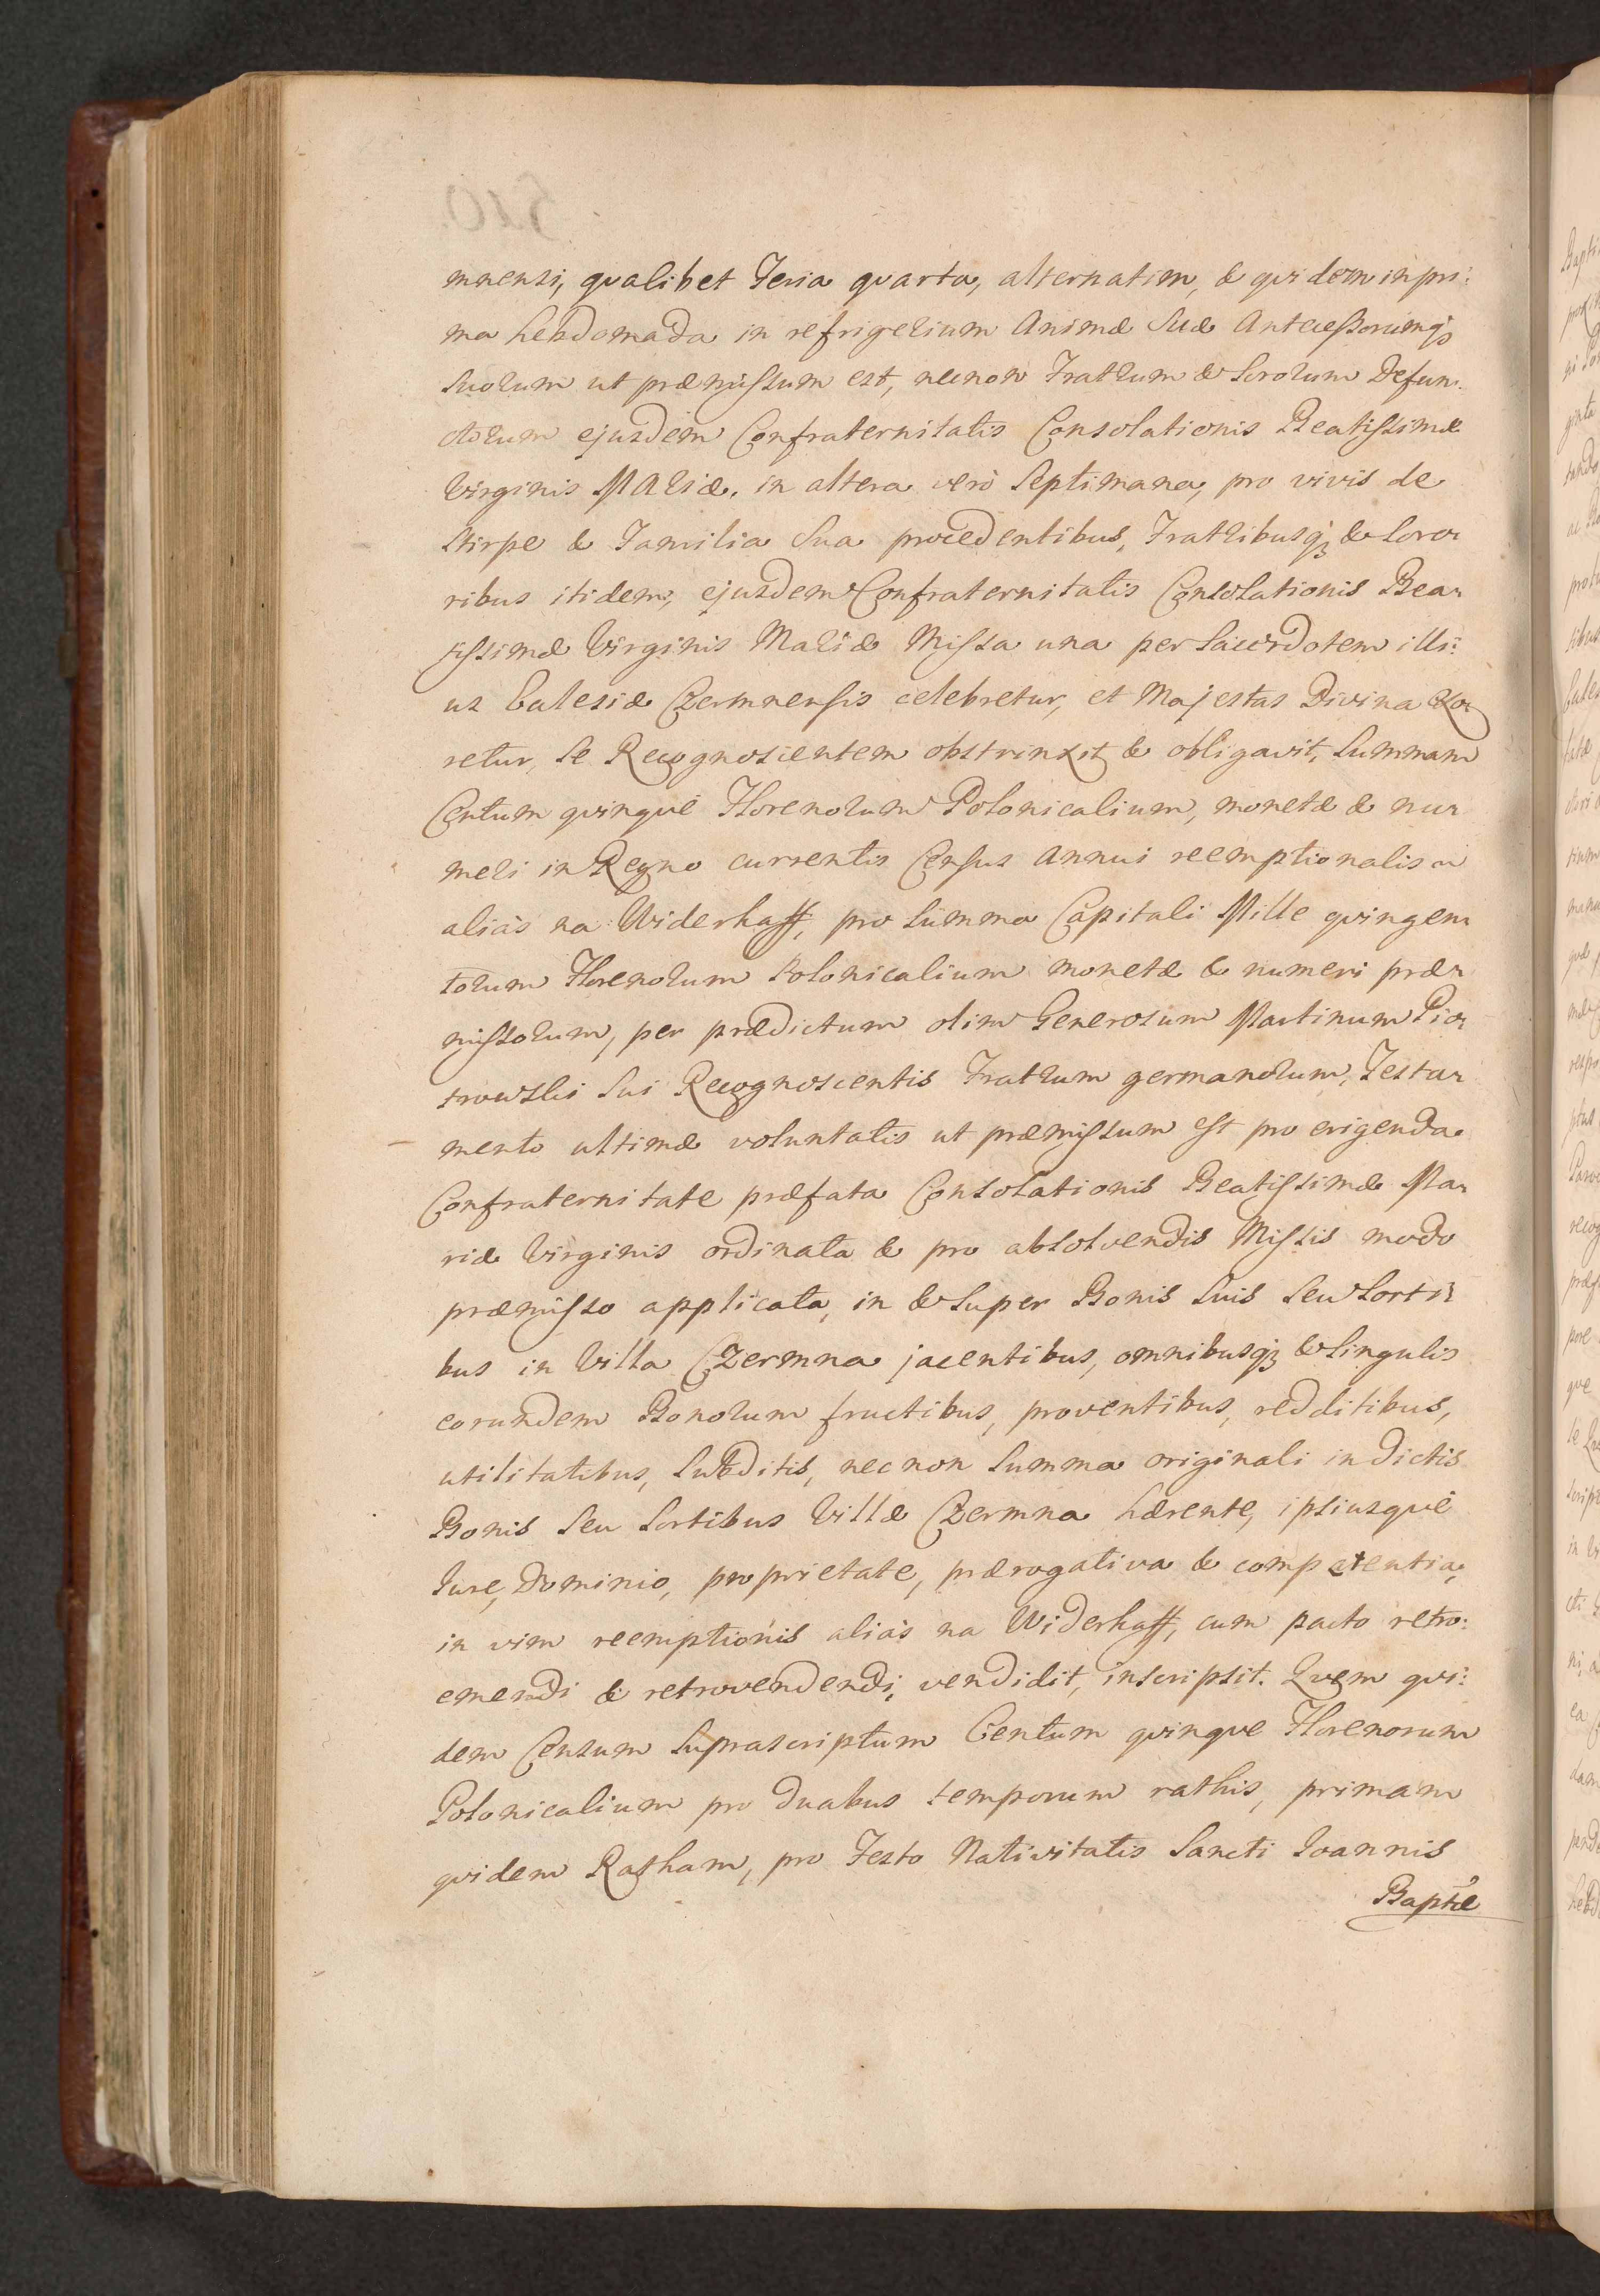 mnensi, qvalibet Feria qvarta, alternatim, & qvidem in pri:
ma hebdomada in refrigerium Animæ Suæ Antecessorumq3
Suorum ut præmissum est, necnon Fratrum & Sororum Defun:
ctorum ejusdem Confraternitatis Consolationis Beatissimæ
Virginis MARIÆ. in altera verò Septimana, pro vivis de
Stirpe & Familia Sua procedentibus, Fratribusq3 & Soro-
ribus itidem, ejusdem Confraternitatis Consolationis Bea-
tissimæ Virginis Mariæ Missa una per Sacerdotem illi:
us Eclesiæ Czermnensis celebretur, et Majestas Divina
retur, Se Recognoscentem obstrinxit & obligavit, Summam
Centum qvinqve Florenorum Polonicalium, monetæ & nu-
meri in Regno currentis Census Annui reemptionalis
aliàs na Widerkaff, pro Summa Capitali Mille qvingen-
torum Florenorum Polonicalium monetæ & numeri præ-
missorum, per prædictum olim Generosum Martinum Pio-
trowski Sui Recognoscentis Fratrum germanorum, Testa-
mento ultimæ voluntatis ut præmissum est pro erigenda
Confraternitate præfata Consolationis Beatissimæ Ma-
riæ Virginis ordinata & pro absolvendis Missis modo
præmisso applicata, in & Super Bonis Suis Seu Sorti-
bus in Villa Czermna jacentibus, omnibusq3 & Singulis
eorundem Bonorum fructibus, proventibus, redditibus,
utilitatibus, Subditis, nec non Summa originali in dictis
Bonis Seu Sortibus Villæ Czermna hærente, ipsiusqve
Jure, Dominio, proprietate, prærogativa & competentia,
in vim reemptionis aliàs na Widerkaff, cum pacto retro:
emendi & retrovendendi, vendidit, inscripsit. Qvem qvi:
dem Censum Suprascriptum Centum qvinqve Florenorum
Polonicalium pro duabus temporum rathis, primam
qvidem Ratham, pro Festo Nativitatis Sancti Joannis
Baptæ